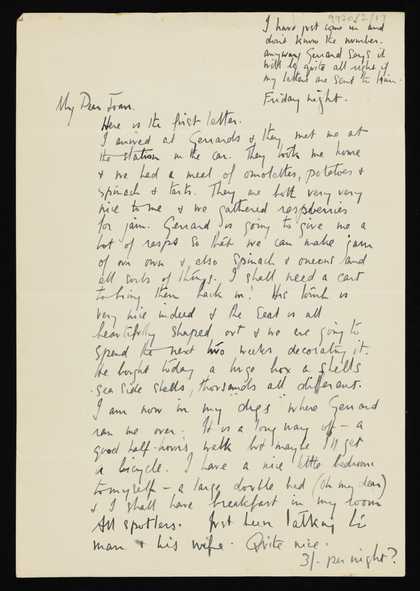 9920/2/19
I have just come in and
don't know the number.
anyway Gerrard says it
will be quite all right if
my letters are sent to him.
Friday night.
My Dear Joan.
Here is the first letter.
I arrived at Gerrards & they met me at
the station in the car. They took me home
& we had a meal of omolettes, potatoes &
spinach & tarts. They are both very very
nice to me & we gathered raspberries
for jam. Gerrard is going to give me a
lot of rasps so that we can make jam
of our own & also spinach & oneons and
all sorts of things. I shall need a cart
to bring them back in. His tomb is
very nice indeed & the seat is all
beautifully shaped out & we are going to
spend the next two weeks decorating it.
He bought today a huge box of shells
sea side shells, thousands all different.
I am now in my "digs" where Gerrard
ran me over. It is a long way off - a
good half-hours walk but maybe I'll get
a bicycle. I have a nice little bedroom
to myself - a large double bed (oh my dear)
& I shall have breakfast in my room
All spotless. Just been talking to
man & his wife. Quite nice.
3/- per night?